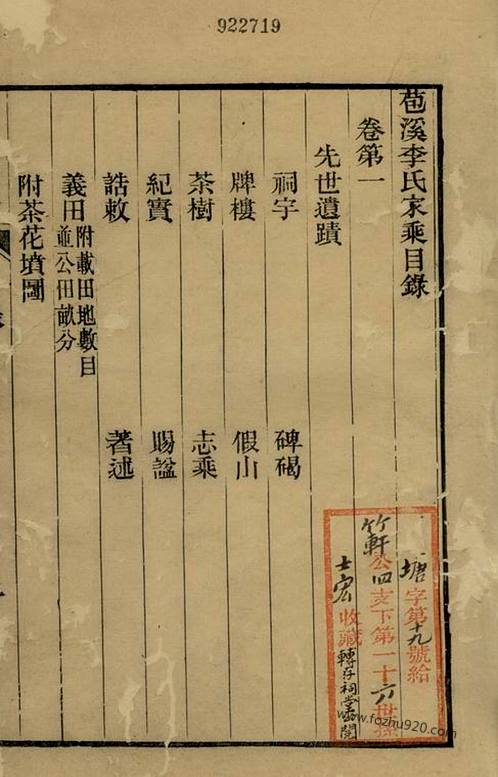 922719
苞溪李氏家乘目錄
卷第一
先世遺蹟
祠宇　碑碣
牌樓　假山
茶樹　志乘
紀實　賜謚
誥敕　著述
義田附載田地數目並公田畝分
附茶花墳圖
塘字第十九號給
竹軒公四支下第一十六世孫
士宏收藏
轉存祠堂
www.fozhu920.com